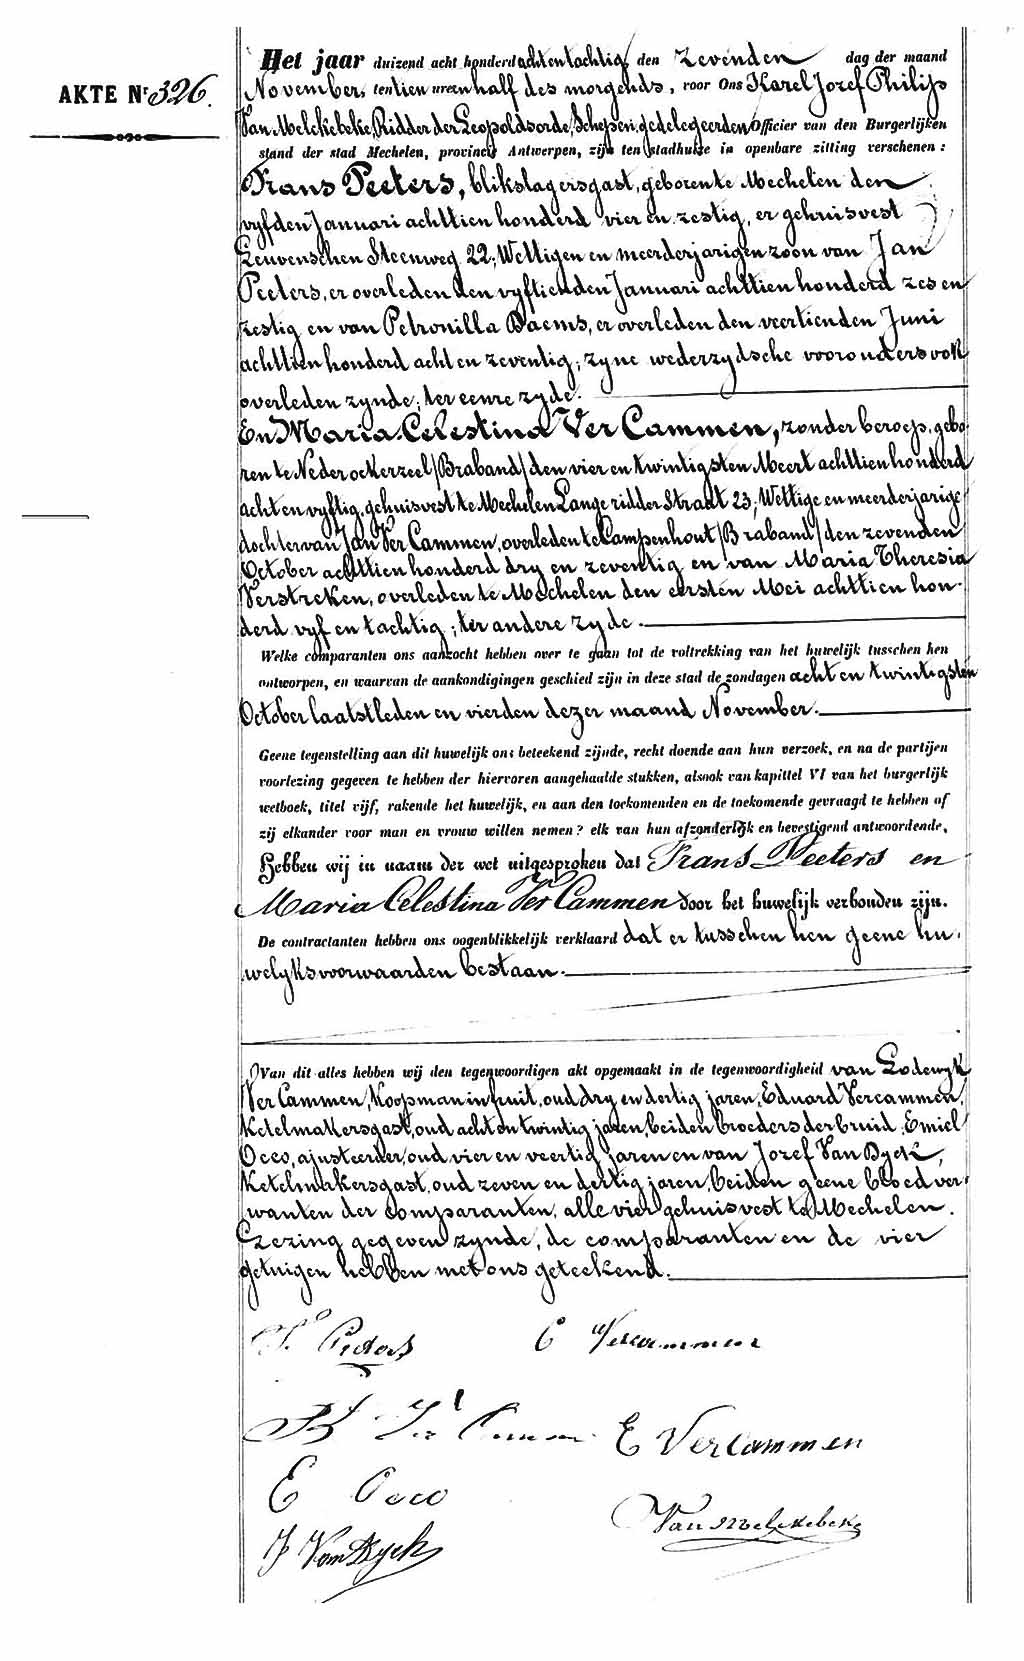 AKTE Nr 326.
Het jaar duizend acht honderd acht en tachtig, den zevenden dag der maand
November, ten tien uren half des morgends, voor Ons Karel Jozef Philip
Van Melckebeke, Ridder der Leopoldsorde, Schepen, gedelegeerden Officier van den Burgerlijken
stand der stad Mechelen, provincie Antwerpen, zijn ten stadhuize in openbare zitting verschenen :
Frans Peeters, blikslagersgast, geboren te Mechelen den
vyfden Januari achttien honderd vier en zestig, er gehuisvest
Leuvenschen Steenweg 22; Wettigen en meerderjarigen zoon van Jan
Peeters, er overleden den vyftienden Januari achttien honderd zes en
zestig en van Petronilla Daems, er overleden den veertienden Juni
achttien honderd acht en zeventig; zyne wederzydsche voorouders ook
overleden zynde; ter eenre zyde.
En Maria Celestina Ver Cammen, zonder beroep, gebo-
ren te Nederockerzeel /Braband/ den vier en twintigsten Meert achttien honderd
acht en vyftig, gehuisvest te Mechelen Lange ridder Straat 23; Wettige en meerderjarige
dochter van Jan Ver Cammen, overleden te Campenhout /Braband/ den zevenden
October achttien honderd dry en zeventig en van Maria Theresia
Verstreken, overleden te Mechelen den eersten Mei achttien hon-
derd vyf en tachtig; ter andere zyde.
Welke comparanten ons aanzocht hebben over te gaan tot de voltrekking van het huwelijk tusschen hen
ontworpen, en waarvan de aankondigingen geschied zijn in deze stad de zondagen acht en twintigsten
October laatstleden en vierden dezer maand November.
Geene tegenstelling aan dit huwelijk ons beteekend zijnde, recht doende aan hun verzoek, en na de partijen
voorlezing gegeven te hebben der hiervoren aangehaalde stukken, alsook van kapittel VI van het burgerlijk
wetboek, titel vijf, rakende het huwelijk, en aan den toekomenden en de toekomende gevraagd te hebben of
zij elkander voor man en vrouw willen nemen? elk van hun afzonderlijk en bevestigend antwoordende,
Hebben wij in naam der wet uitgesproken dat Frans Peeters en
Maria Celestina Ver Cammen door het huwelijk verbonden zijn.
De contractanten hebben ons oogenblikkelijk verklaard dat er tusschen hen geene hu-
welyksvoorwaarden bestaan.
Van dit alles hebben wij den tegenwoordigen akt opgemaakt in de tegenwoordigheid van Lodewyk
Ver Cammen, Koopman in fruit, oud dry en dertig jaren, Eduard Vercammen,
Ketelmakersgast, oud acht en twintig jaren, beiden broeders der bruid; Emiel
Occo, ajusteerder, oud vier en veertig jaren en van Jozef Van Dyck,
Ketelmakersgast, oud zeven en dertig jaren, beiden geene bloedver-
wanten der comparanten, alle vier gehuisvest te Mechelen.
Lezing gegeven zynde, de comparanten en de vier
getuigen hebben met ons geteekend.
F. Pieters C Vercammen
Ver Camm E Vercammen
E Occo
Van Melckebeke
J Van Dyck